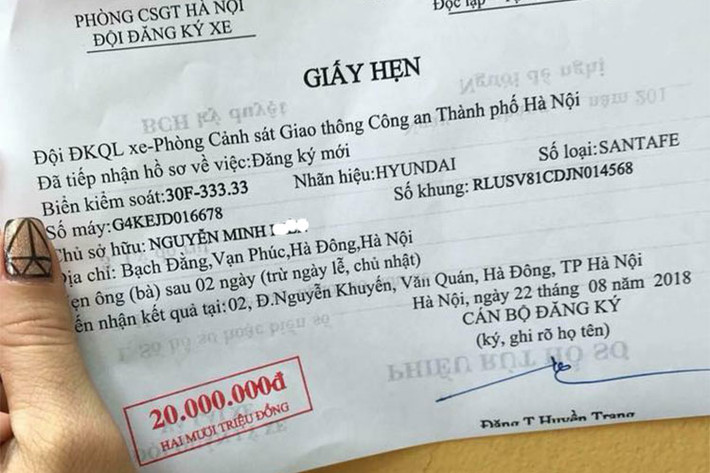 PHÒNG CSGT HÀ NỘI
ĐỘI ĐĂNG KÝ XE
Độc lập
GIẤY HẸN
Đội ĐKQL xe-Phòng Cảnh sát Giao thông Công an Thành phố Hà Nội
Đã tiếp nhận hồ sơ về việc:Đăng ký mới
Biển kiểm soát:30F-333.33 Nhãn hiệu:HYUNDAI Số loại:SANTAFE
Số máy:G4KEJD016678 Số khung: RLUSV81CDJN014568
Chủ sở hữu: NGUYỄN MINH
Địa chỉ: Bạch Đằng,Vạn Phúc,Hà Đông,Hà Nội
ẹn ông (bà) sau 02 ngày (trừ ngày lễ, chủ nhật)
ến nhận kết quả tại:02, Đ.Nguyễn Khuyến, Văn Quán, Hà Đông, TP Hà Nội
Hà Nội, ngày 22 tháng 08 năm 2018
CÁN BỘ ĐĂNG KÝ
(ký, ghi rõ họ tên)
20.000.000đ
HAI MƯƠI TRIỆU ĐỒNG
Đặng T Huyền Trang